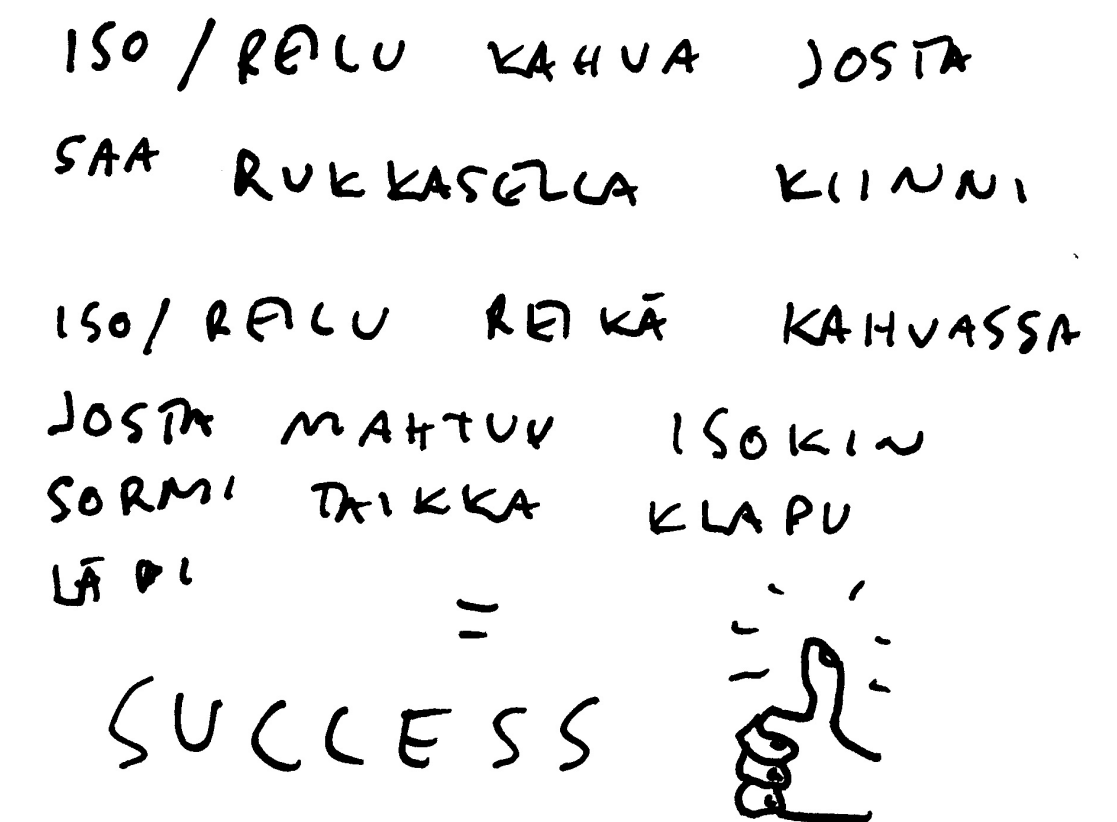 ISO / REILU KAHVA JOSTA
SAA RUKKASELLA KIINNI
ISO / REILU REIKÄ KAHVASSA
JOSTA MAHTUU ISOKIN
SORMI TAIKKA KLAPU
LÄPI
=
SUCCESS